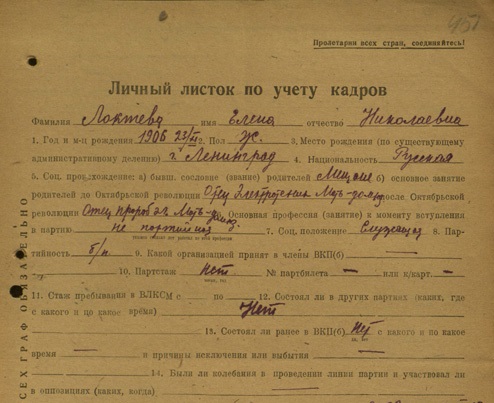 457
Пролетарии всех стран, соединяйтесь!
Личный листок по учету кадров
Фамилия Локтева имя Елена отчество Николаевна
1. Год и м-ц рождения 1906 23/ 2. Пол Ж. 3. Место рождения (по существующему
административному делению) г. Ленинград 4. Национальность Русская
5. Соц. происхождение: а) бывш. сословие (звание) родителей Мещане б) основное занятие
родителей до Октябрьской революции Отец после Октябрьской
революции Отец Основная профессия (занятие) к моменту вступления
в партию не партийная 7. Соц. положение Служащая 8. Пар-
тийность б/п 9. Какой организацией принят в члены ВКП(б) —
10. Партстаж нет № партбилета — или к/карт. —
11. Стаж пребывания в ВЛКСМ с по 12. Состоял ли в других партиях (каких, где
с какого и по какое время) Нет
13. Состоял ли ранее в ВКП(б) Нет с какого и по какое
время — и причины исключения или выбытия —
14. Были ли колебания в проведении линии партии и участвовал ли
в оппозициях (каких, когда) —
ОБЯЗАТЕЛЬНО
ГРАФ